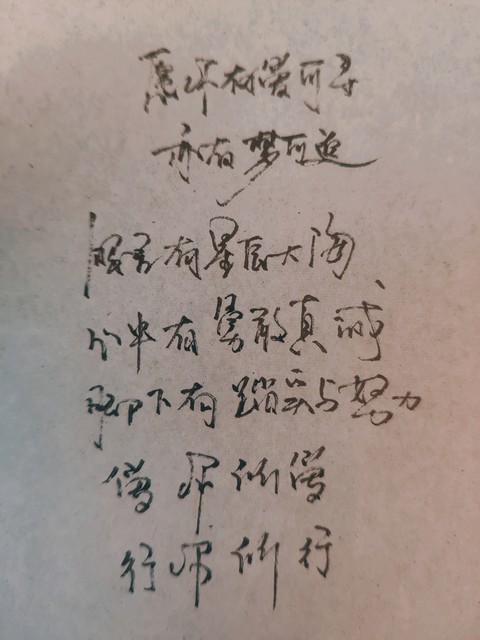 愿你有爱可寻
亦有梦可追
眼里有星辰大海
心中有勇敢真诚
脚下有踏实与努力
你所
行你所行